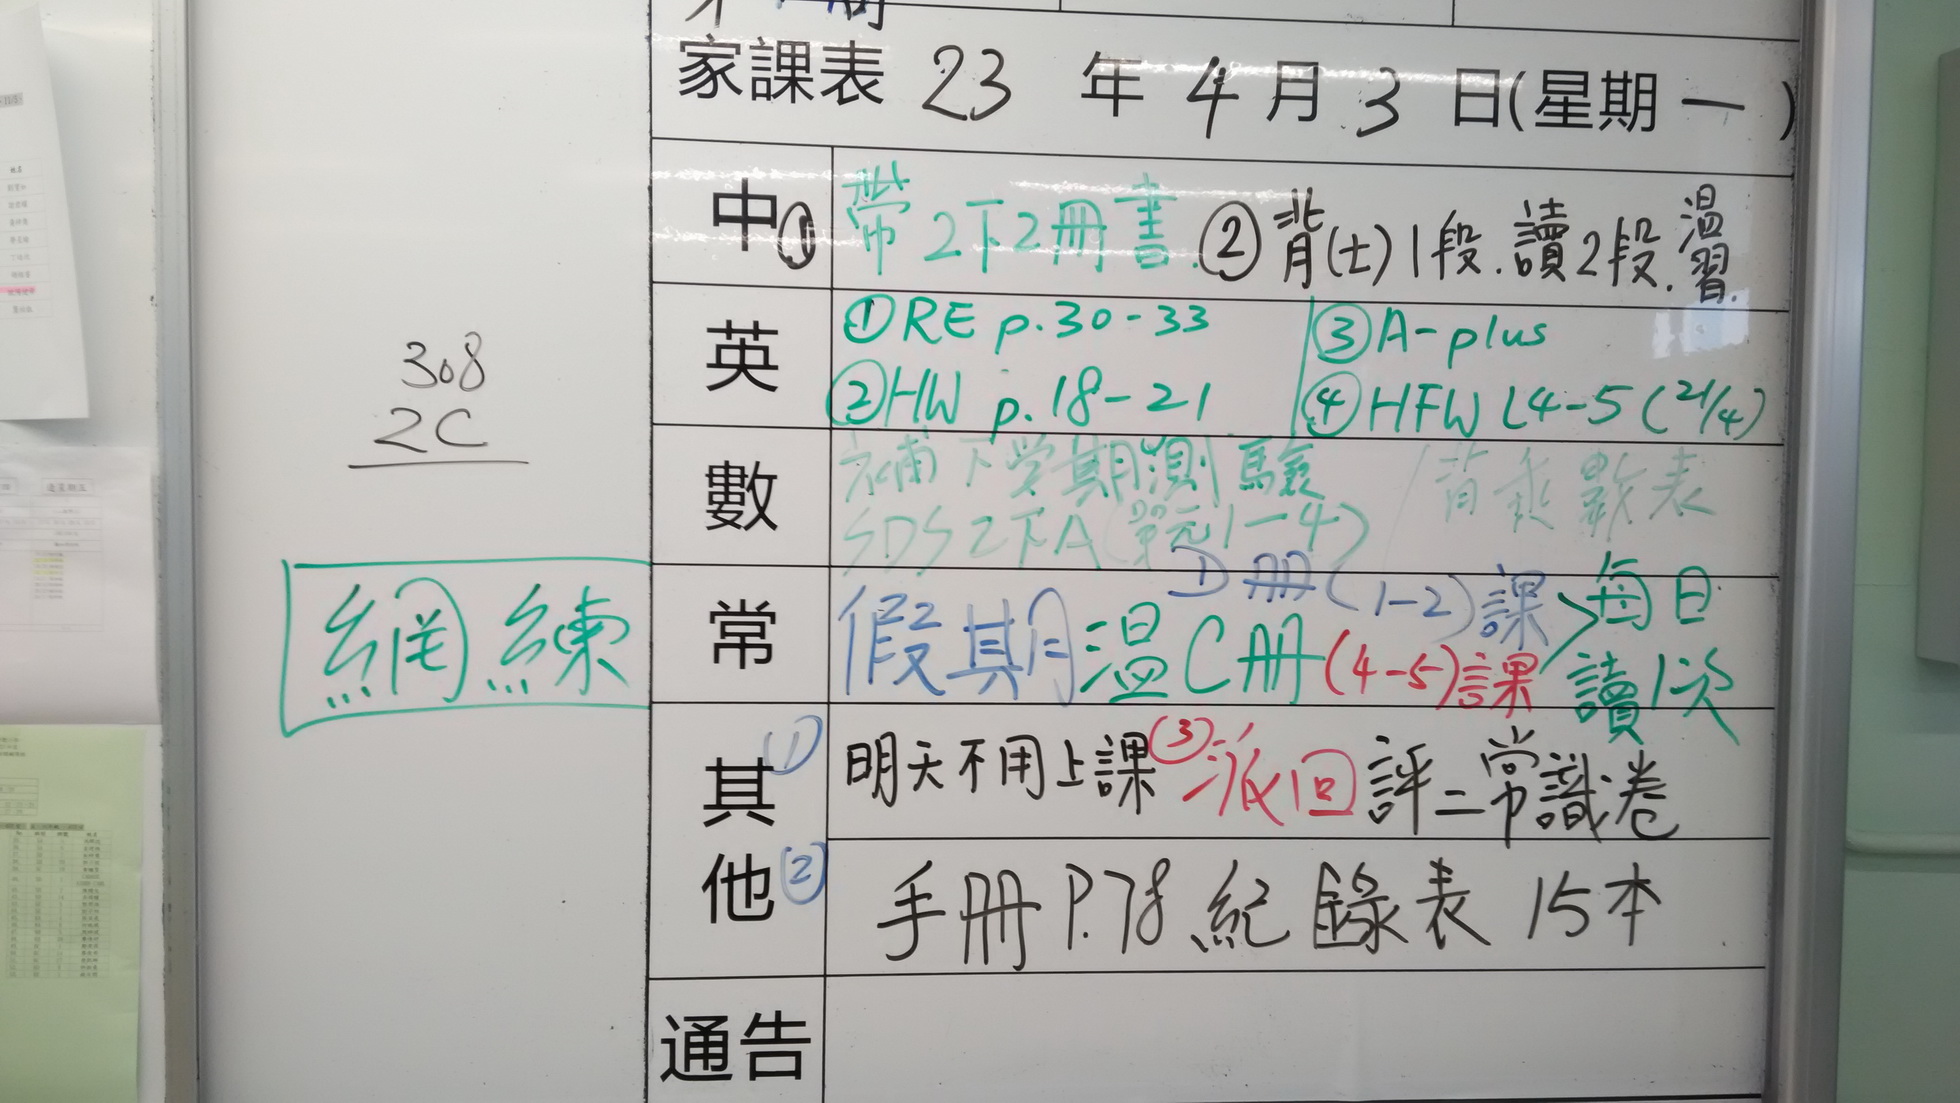 家課表 23 年 4 月 3 日(星期 一 )
中 ① 帶2下2冊書. ②背(士)1段.讀2段.溫習.
英 ①RE p.30-33 ③A-plus
②HW p.18-21 ④HFW L4-5 (21/4)
數 補下学期測驗 / 背乘數表
SDS 2下A(單元1-4)
308
2C
網練
常 假期溫C冊(4-5)課 D冊(1-2)課 > 每日
讀1次
其他 (1) 明天不用上課 (3)派回評二常識卷
(2) 手冊P.78紀錄表 15本
通告